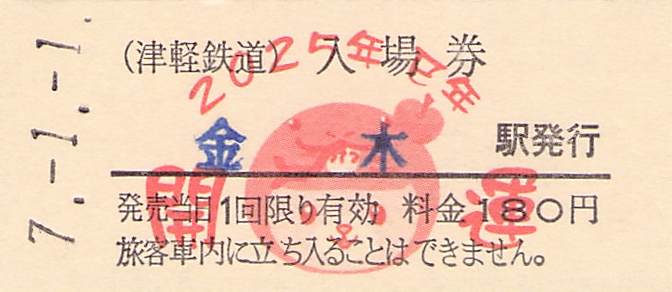 7.-1.-1.
(津軽鉄道) 入場券
2025年巳年
金木 駅発行
開運
発売当日1回限り有効 料金180円
旅客車内に立ち入ることはできません。